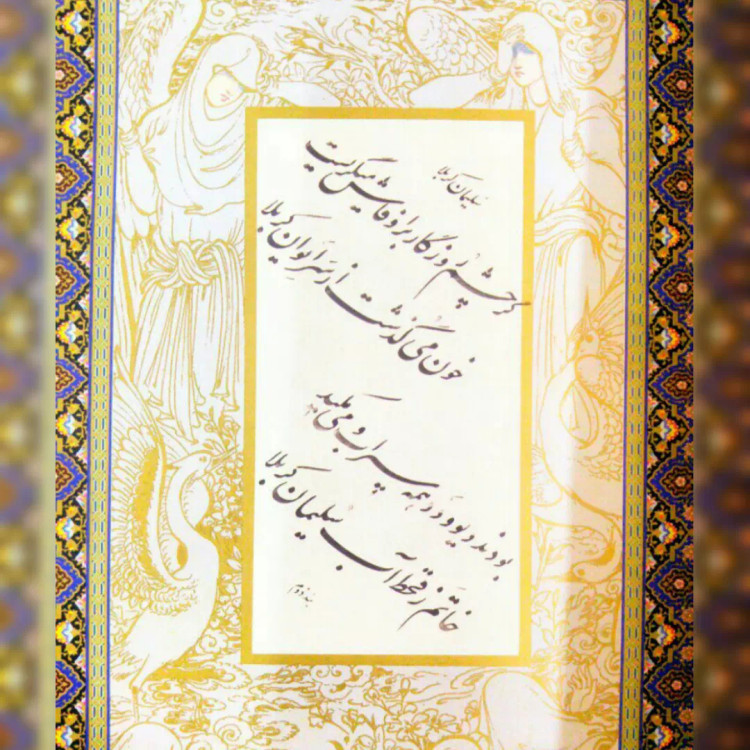 سلیمان کربلا
گر چشم روزگار بر او فاش میگریست
خون می گذشت از سر ایوان کربلا
بودند دیو و دد همه سیراب و می مکید
خاتم ز قحط آب سلیمان کربلا
بند دوم